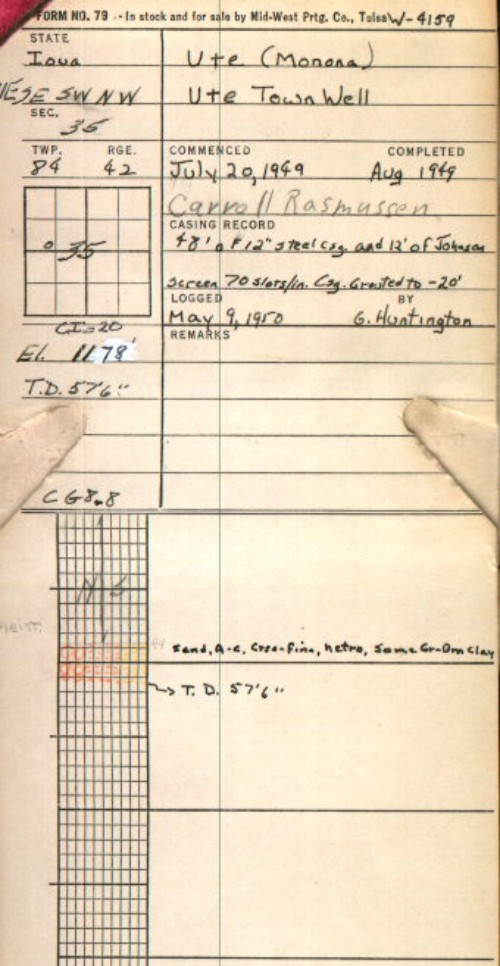 FORM NO. 79 -- In stock and for sale by Mid-West Prtg. Co., Tulsa W-4159
STATE
Iowa Ute (Monona)
SE SW NW Ute Town Well
SEC.
35
TWP. RGE. COMMENCED COMPLETED
84 42 July 20, 1949 Aug 1949
Carroll Rasmussen
CASING RECORD
35 48' of 12" steel Csg. and 12' of Johnson
Screen 70 slots/in. Csg. Grouted to -20'
LOGGED BY
May 9, 1950 G. Huntington
CI=20 REMARKS
El. 1178'
T.D. 57'6"
CG8.8
NS
Sand, A-c, Crse-Fine, hetro, Some Gr-Brn Clay
T.D. 57'6"